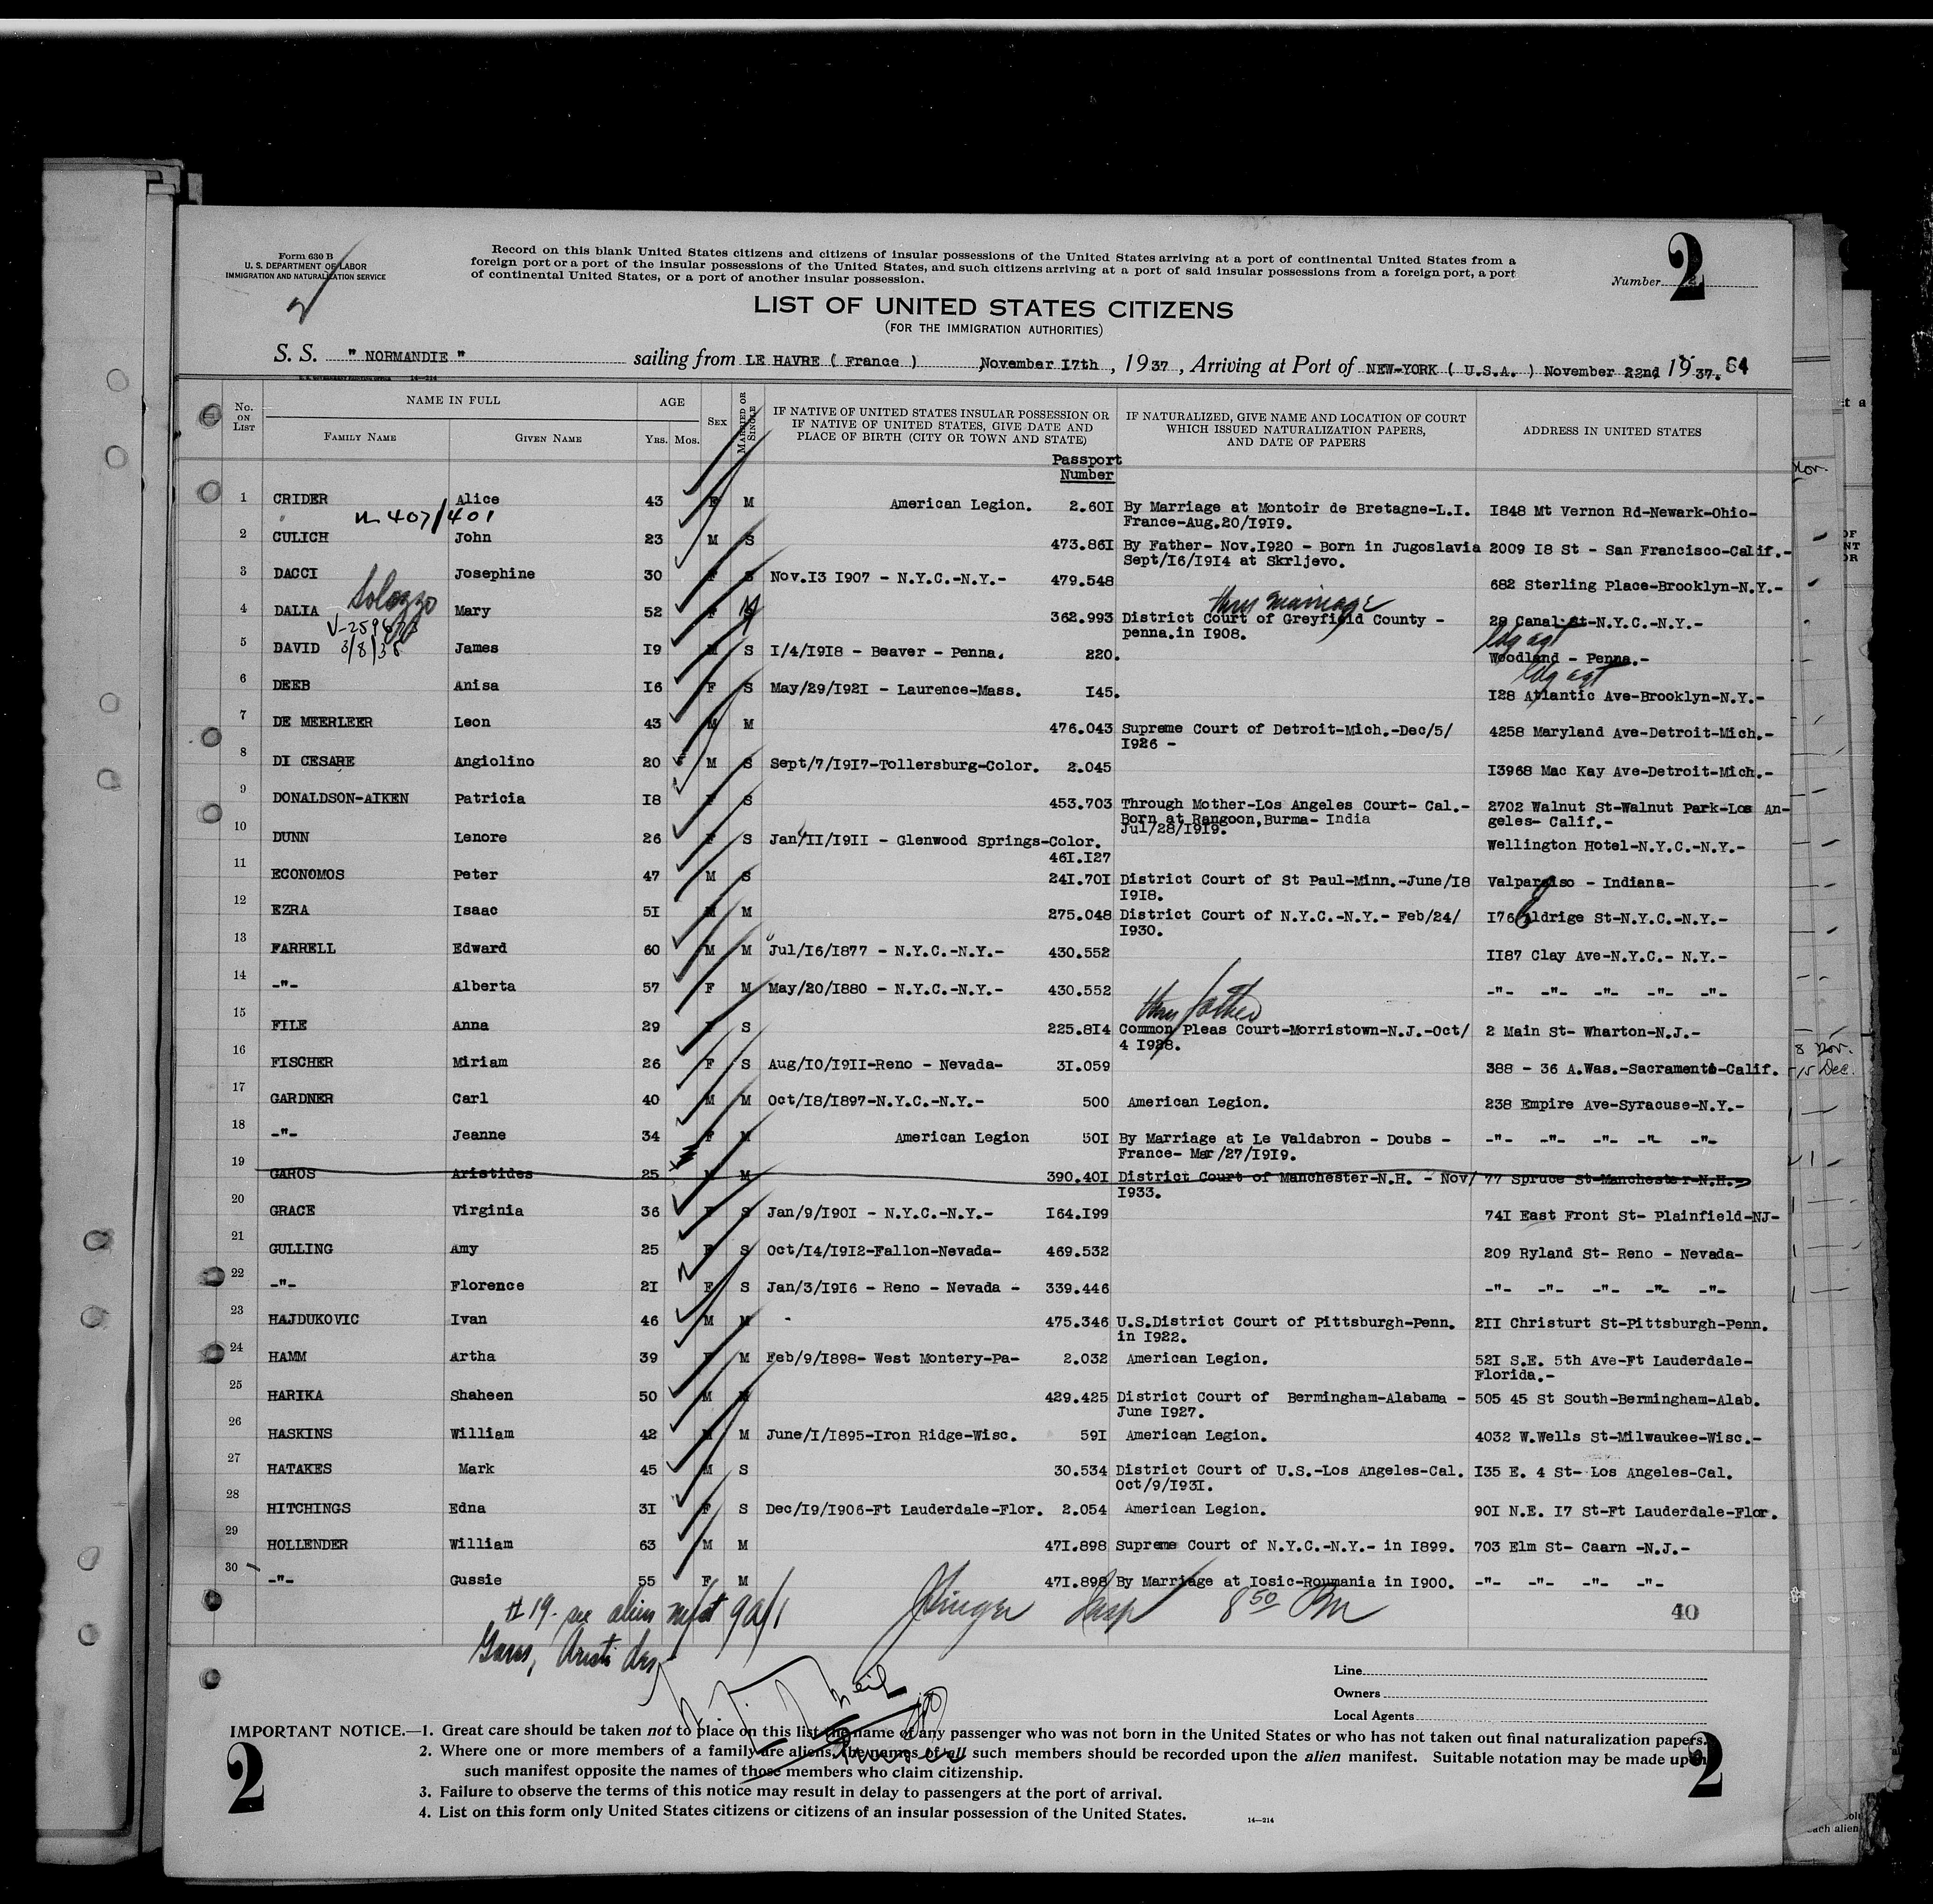 Form 630 B
U. S. DEPARTMENT OF LABOR
IMMIGRATION AND NATURALIZATION SERVICE
Record on this blank United States citizens and citizens of insular possessions of the United States arriving at a port of continental United States from a
foreign port or a port of the insular possessions of the United States, and such citizens arriving at a port of said insular possessions from a foreign port, a port
of continental United States, or a port of another insular possession.
Number 2
LIST OF UNITED STATES CITIZENS
(FOR THE IMMIGRATION AUTHORITIES)
S. S. " NORMANDIE " sailing from LE HAVRE ( France ) November I7th, 1937, Arriving at Port of NEW-YORK ( U.S.A. ) November 22nd 1937. 64
No. ON LIST NAME IN FULL AGE SEX MARRIED OR SINGLE IF NATIVE OF UNITED STATES INSULAR POSSESSION OR IF NATIVE OF UNITED STATES, GIVE DATE AND PLACE OF BIRTH (CITY OR TOWN AND STATE) IF NATURALIZED, GIVE NAME AND LOCATION OF COURT WHICH ISSUED NATURALIZATION PAPERS, AND DATE OF PAPERS ADDRESS IN UNITED STATES
FAMILY NAME GIVEN NAME YRS. MOS.
Passport
Number
1 CRIDER Alice 43 F M American Legion. 2.60I By Marriage at Montoir de Bretagne-L.I. I848 Mt Vernon Rd-Newark-Ohio-
France-Aug.20/I9I9.
407/401
2 CULICH John 23 M S 473.86I By Father- Nov.I920 - Born in Jugoslavia 2009 I8 St - San Francisco-Calif.-
Sept/I6/I9I4 at Skrljevo.
3 DACCI Josephine 30 F S Nov.I3 I907 - N.Y.C.-N.Y.- 479.548 682 Sterling Place-Brooklyn-N.Y.-
Solozzo thru marriage
4 DALIA Mary 52 F M 362.993 District Court of Greyfield County - 29 Canal St-N.Y.C.-N.Y.-
penna.in I908.
3/8/38
5 DAVID James I9 M S I/4/I9I8 - Beaver - Penna. 220. Woodland - Penna.-
6 DEEB Anisa I6 F S May/29/I92I - Laurence-Mass. I45. I28 Atlantic Ave-Brooklyn-N.Y.-
7 DE MEERLEER Leon 43 M M 476.043 Supreme Court of Detroit-Mich.-Dec/5/ 4258 Maryland Ave-Detroit-Mich.-
I926 -
8 DI CESARE Angiolino 20 M S Sept/7/I9I7-Tollersburg-Color. 2.045 I3968 Mac Kay Ave-Detroit-Mich.-
9 DONALDSON-AIKEN Patricia I8 F S 453.703 Through Mother-Los Angeles Court- Cal.- 2702 Walnut St-Walnut Park-Los An-
Born at Rangoon,Burma- India geles- Calif.-
Jul/28/I9I9.
10 DUNN Lenore 26 F S Jan/II/I9II - Glenwood Springs-Color. Wellington Hotel-N.Y.C.-N.Y.-
46I.I27
11 ECONOMOS Peter 47 M S 24I.70I District Court of St Paul-Minn.-June/I8 Valparaiso - Indiana-
I9I8.
12 EZRA Isaac 5I M M 275.048 District Court of N.Y.C.-N.Y.- Feb/24/ I76 Eldrige St-N.Y.C.-N.Y.-
I930.
13 FARRELL Edward 60 M M Jul/I6/I877 - N.Y.C.-N.Y.- 430.552 II87 Clay Ave-N.Y.C.- N.Y.-
14 -"- Alberta 57 F M May/20/I880 - N.Y.C.-N.Y.- 430.552 -"- -"- -"- -"- -"-
thru father
15 FILE Anna 29 F S 225.8I4 Common Pleas Court-Morristown-N.J.-Oct/ 2 Main St- Wharton-N.J.-
4 I928.
16 FISCHER Miriam 26 F S Aug/I0/I9II-Reno - Nevada- 3I.059 388 - 36 A.Was.-Sacramento-Calif.
17 GARDNER Carl 40 M M Oct/I8/I897-N.Y.C.-N.Y.- 500 American Legion. 238 Empire Ave-Syracuse-N.Y.-
18 -"- Jeanne 34 F M American Legion 50I By Marriage at Le Valdabron - Doubs - -"- -"- -"- -"- -"-
France- Mar/27/I9I9.
19 GAROS Aristides 25 M M 390.40I District Court of Manchester-N.H. - Nov/ 77 Spruce St-Manchester-N.H.-
I933.
20 GRACE Virginia 36 F S Jan/9/I90I - N.Y.C.-N.Y.- I64.I99 74I East Front St- Plainfield-NJ-
21 GULLING Amy 25 F S Oct/I4/I9I2-Fallon-Nevada- 469.532 209 Ryland St- Reno - Nevada-
22 -"- Florence 2I F S Jan/3/I9I6 - Reno - Nevada - 339.446 -"- -"- -"- -"- -"-
23 HAJDUKOVIC Ivan 46 M M - 475.346 U.S.District Court of Pittsburgh-Penn. 2II Christurt St-Pittsburgh-Penn.
in I922.
24 HAMM Artha 39 F M Feb/9/I898- West Montery-Pa- 2.032 American Legion. 52I S.E. 5th Ave-Ft Lauderdale-
Florida.-
25 HARIKA Shaheen 50 M M 429.425 District Court of Bermingham-Alabama - 505 45 St South-Bermingham-Alab.
June I927.
26 HASKINS William 42 M M June/I/I895-Iron Ridge-Wisc. 59I American Legion. 4032 W.Wells St-Milwaukee-Wisc.-
27 HATAKES Mark 45 M S 30.534 District Court of U.S.-Los Angeles-Cal. I35 E. 4 St- Los Angeles-Cal.
Oct/9/I93I.
28 HITCHINGS Edna 3I F S Dec/I9/I906-Ft Lauderdale-Flor. 2.054 American Legion. 90I N.E. I7 St-Ft Lauderdale-Flor.
29 HOLLENDER William 63 M M 47I.898 Supreme Court of N.Y.C.-N.Y.- in I899. 703 Elm St- Caarn -N.J.-
30 -"- Gussie 55 F M 47I.898 By Marriage at Iosic-Roumania in I900. -"- -"- -"- -"-
#19. see alien Insp 8 50 Pm 40
Garos, Aristides
Line
Owners
Local Agents
IMPORTANT NOTICE.—1. Great care should be taken not to place on this list the name of any passenger who was not born in the United States or who has not taken out final naturalization papers.
2. Where one or more members of a family are aliens, the names of all such members should be recorded upon the alien manifest. Suitable notation may be made upon
such manifest opposite the names of those members who claim citizenship.
3. Failure to observe the terms of this notice may result in delay to passengers at the port of arrival.
4. List on this form only United States citizens or citizens of an insular possession of the United States.
14—214
2
2